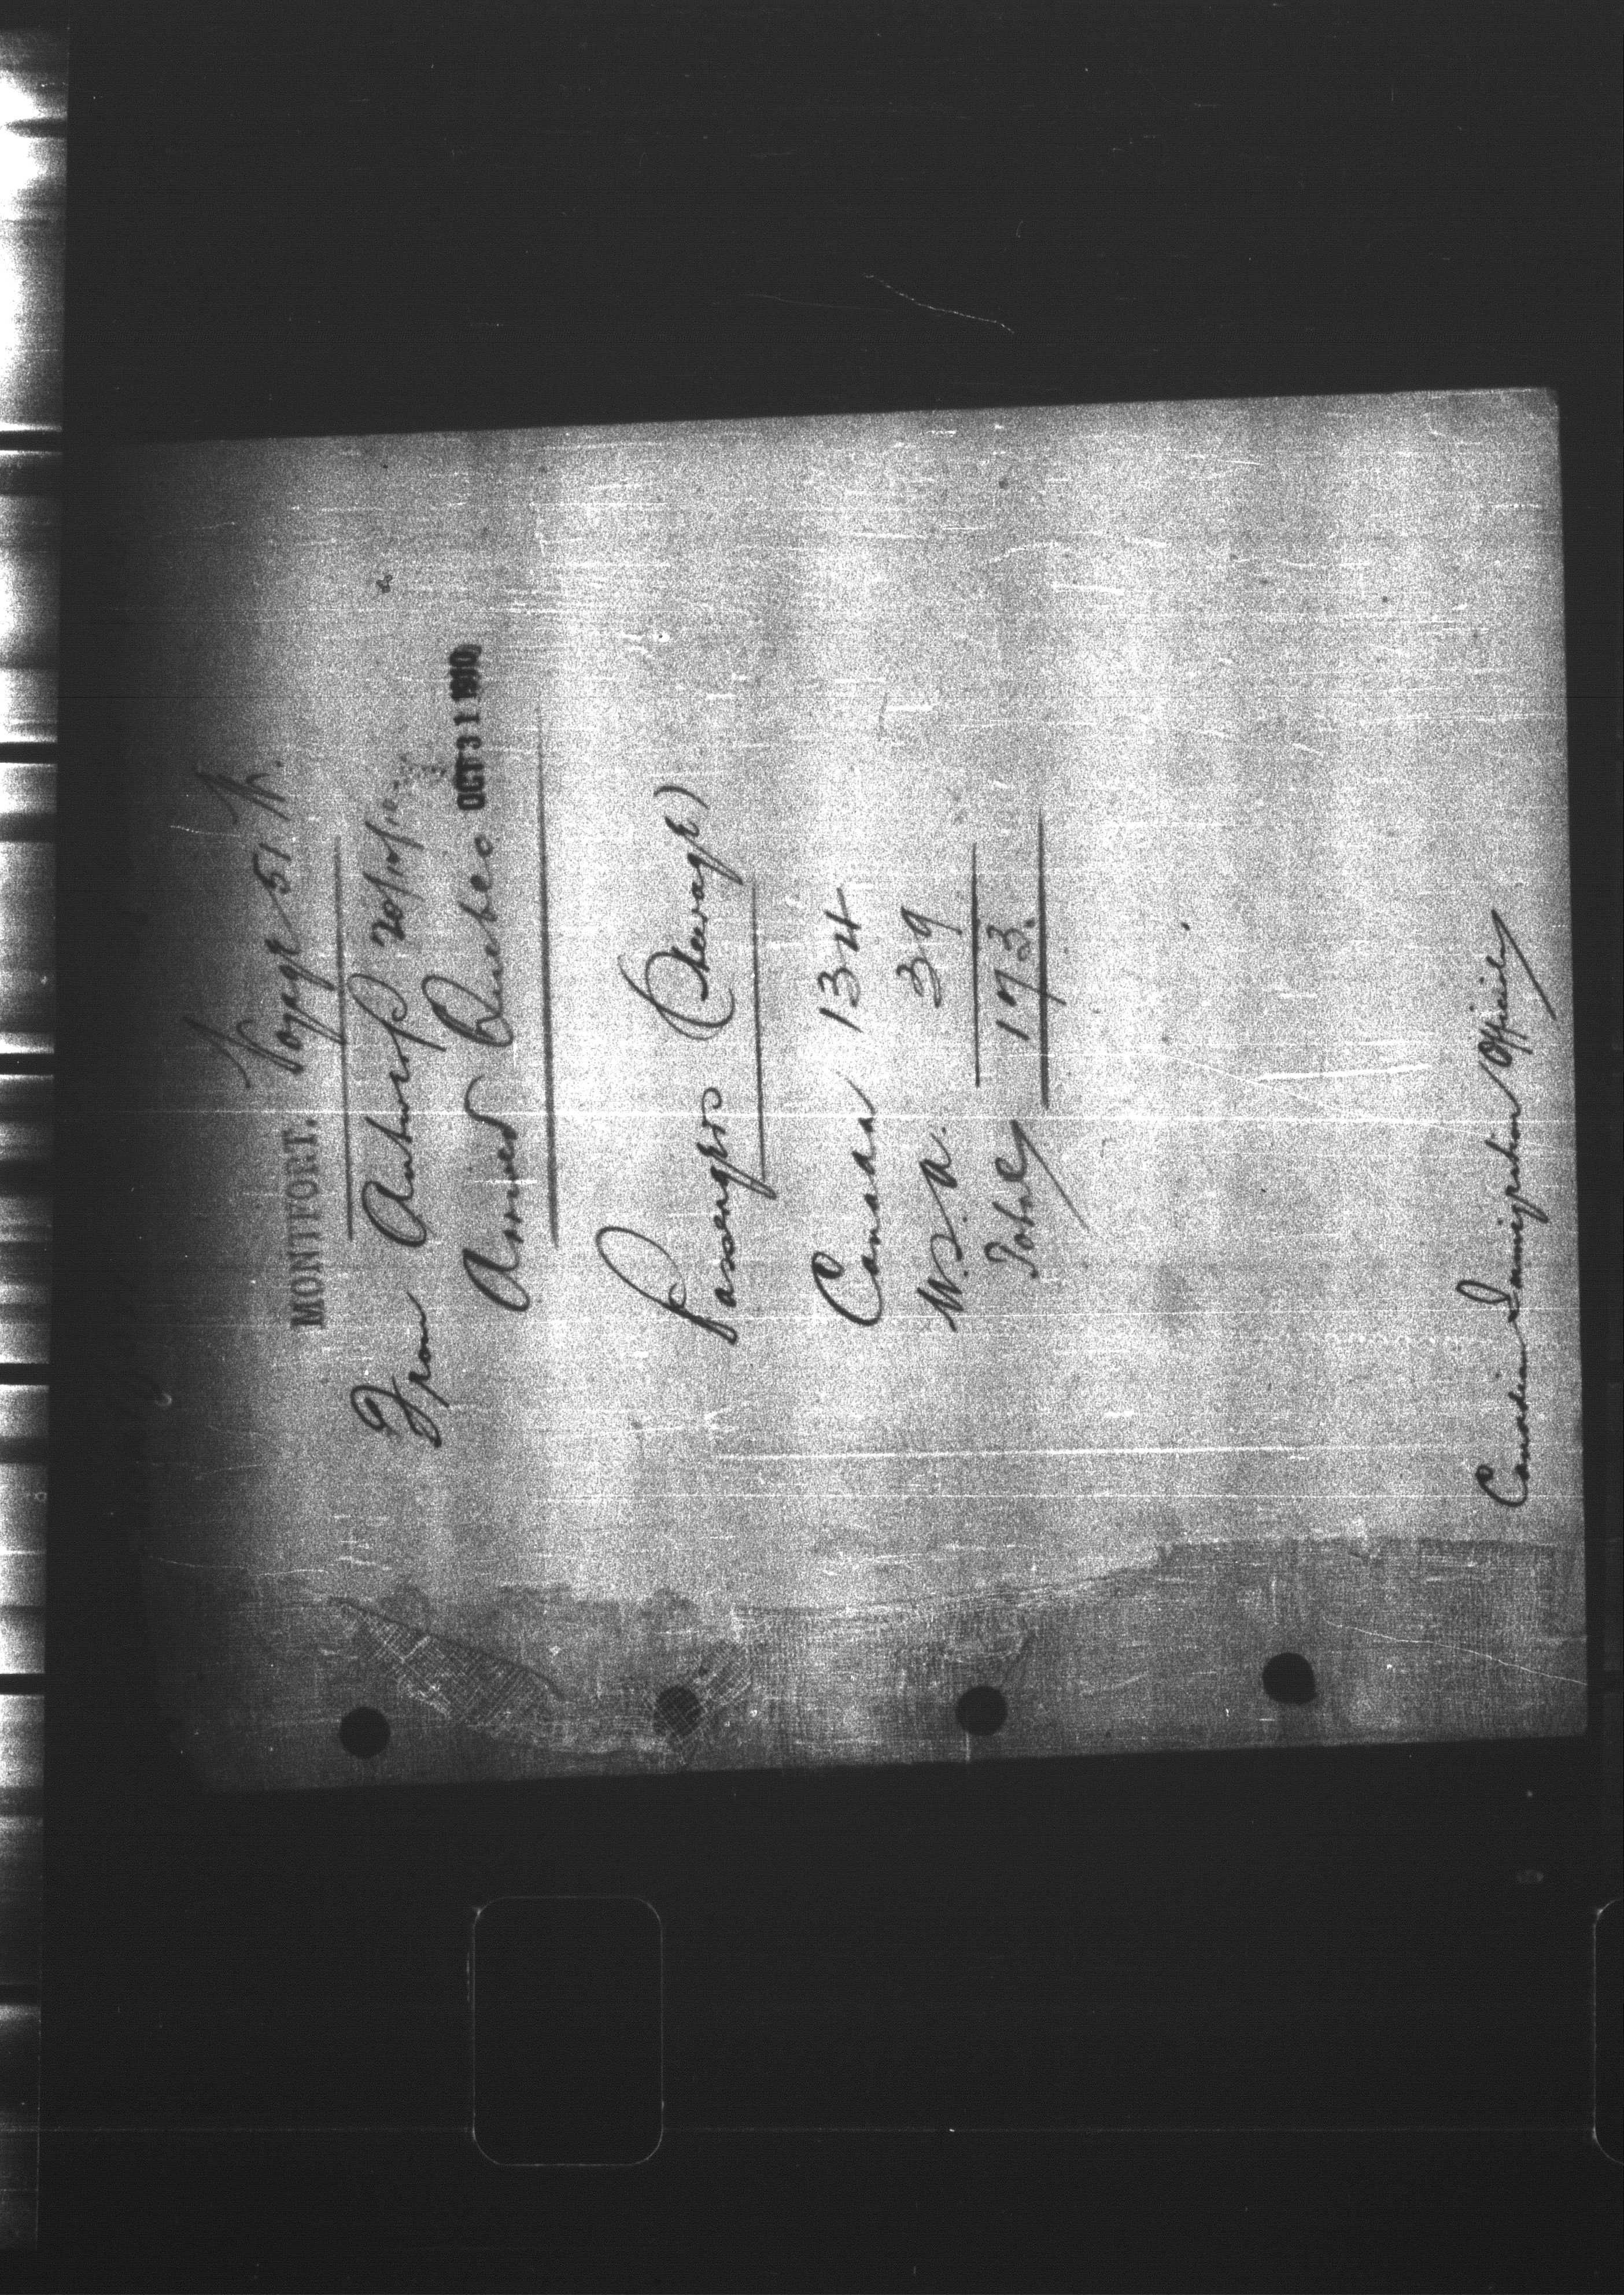 MONTFORT. Voyage 51 Th.
From Antwerp 20/10/10.
Arrived Quebec OCT 31 1910
Passengers (Steerage)
Canada 134
U.S.A. 39
Total 173.
Canadian Immigration Officials